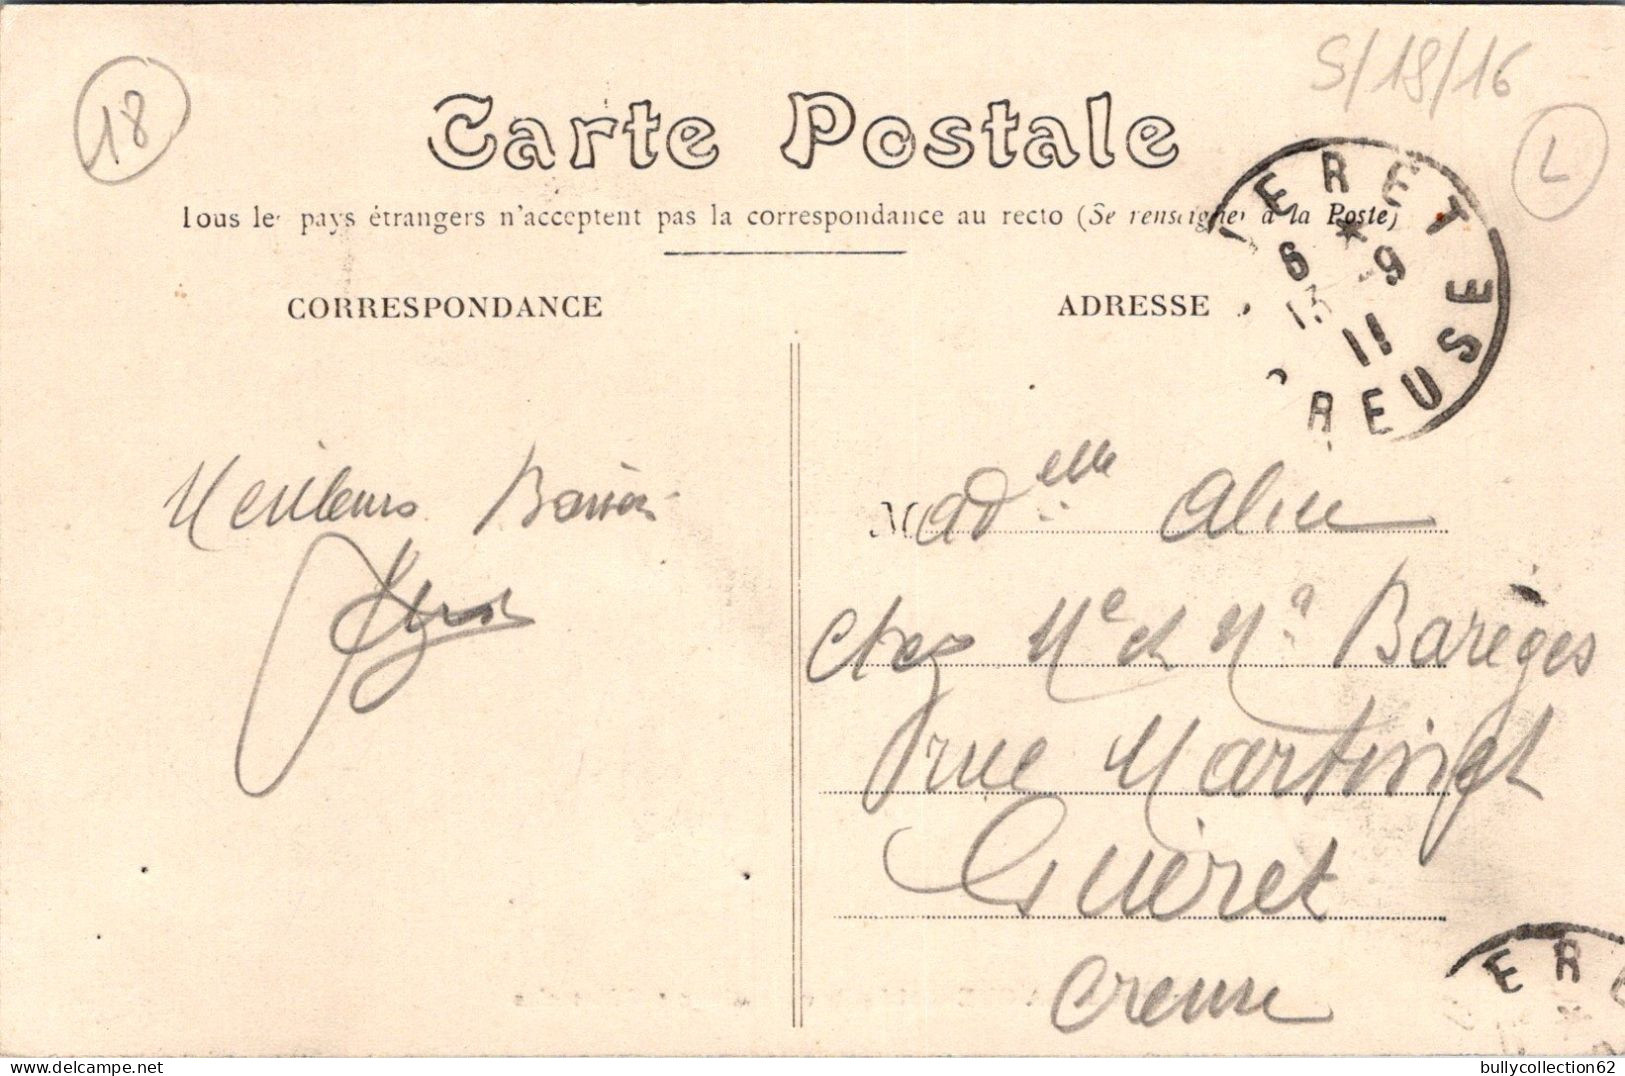 18
S/18/16
L
Carte Postale
Tous les pays étrangers n'acceptent pas la correspondance au recto (Se renseigner à la Poste)
CORRESPONDANCE
ADRESSE
ERET
6 * -9
13 11
REUSE
Meilleurs Baisers
Madelle Aline
Chez Me et Ma Barèges
rue Martinet
Guéret
Creuse
ER
bullycollection62